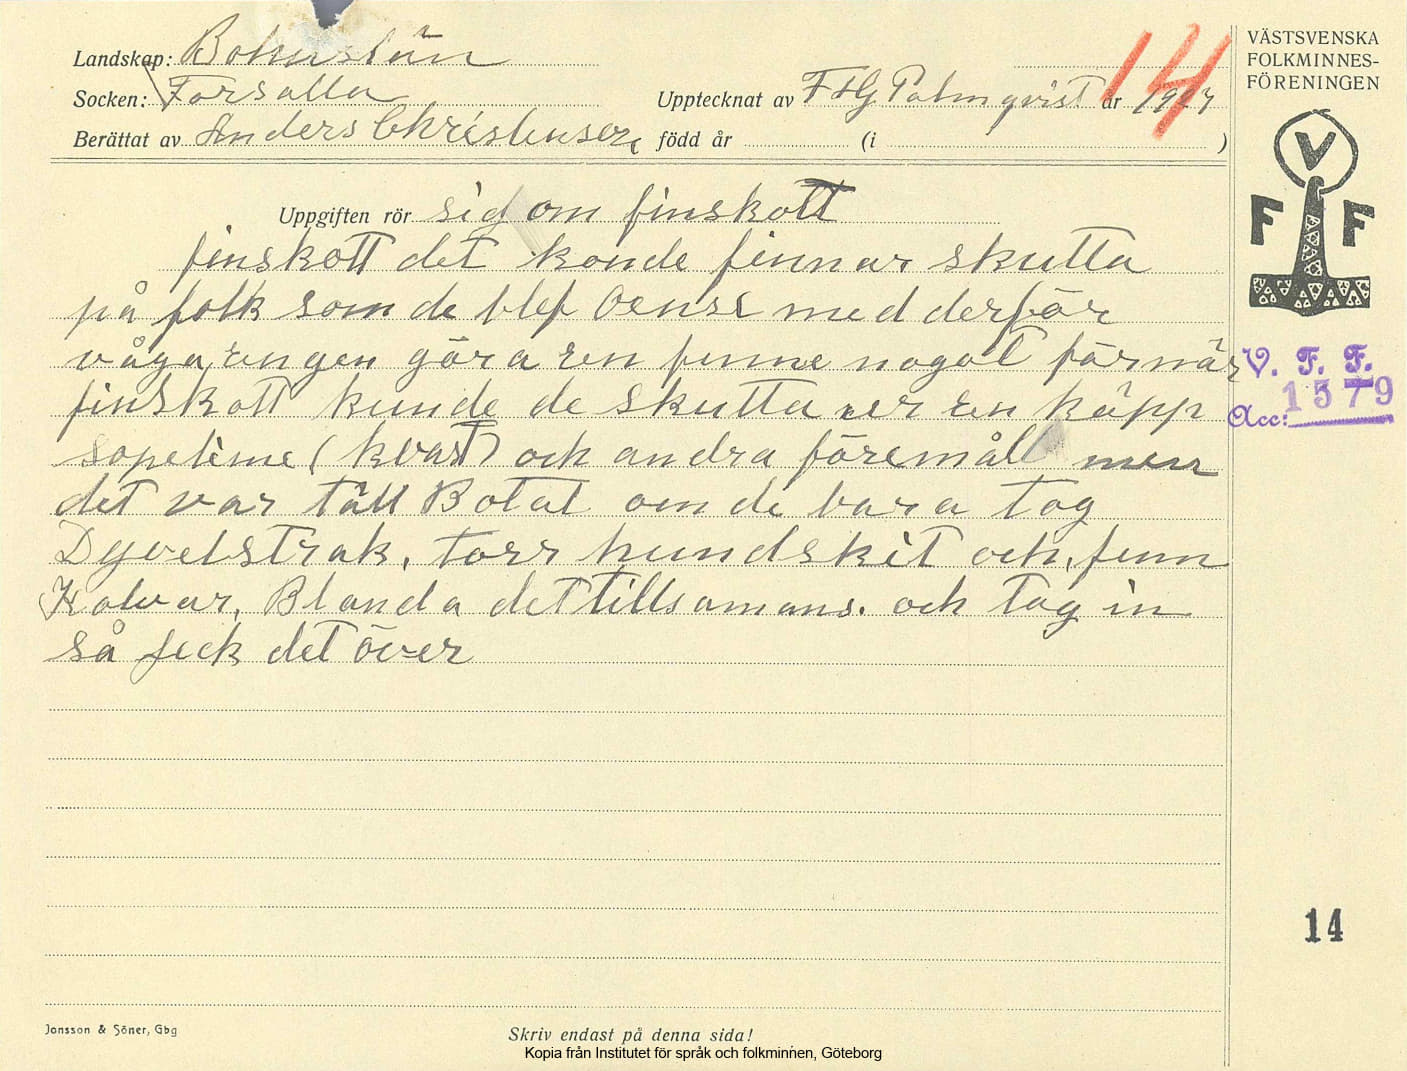 Landskap: Bohuslän
Socken: Forsalla
Berättat av Anders Chrisluser
Upptecknat av F HG Palmqvist år 1927
född år (i )
14
VÄSTSVENSKA
FOLKMINNES-
FÖRENINGEN
V
F F
Uppgiften rör sid om finskott
finskott det konde finnar skutta
på folk som de blef Oense med derför
våga, engen göra en finne nogot förnär
finskott kunde de skutta er en käpp
sopelime (kvast) och andra föremåll men
det var tåll Botat om de bara tog
Dyvelstrak, torr hundskit och, finn
Kolvar, Blanda det tillsamans. och tog in
så feck det över
V. F. F.
Acc: 1579
14
Jonsson & Söner, Gbg
Skriv endast på denna sida!
Kopia från Institutet för språk och folkminnen, Göteborg